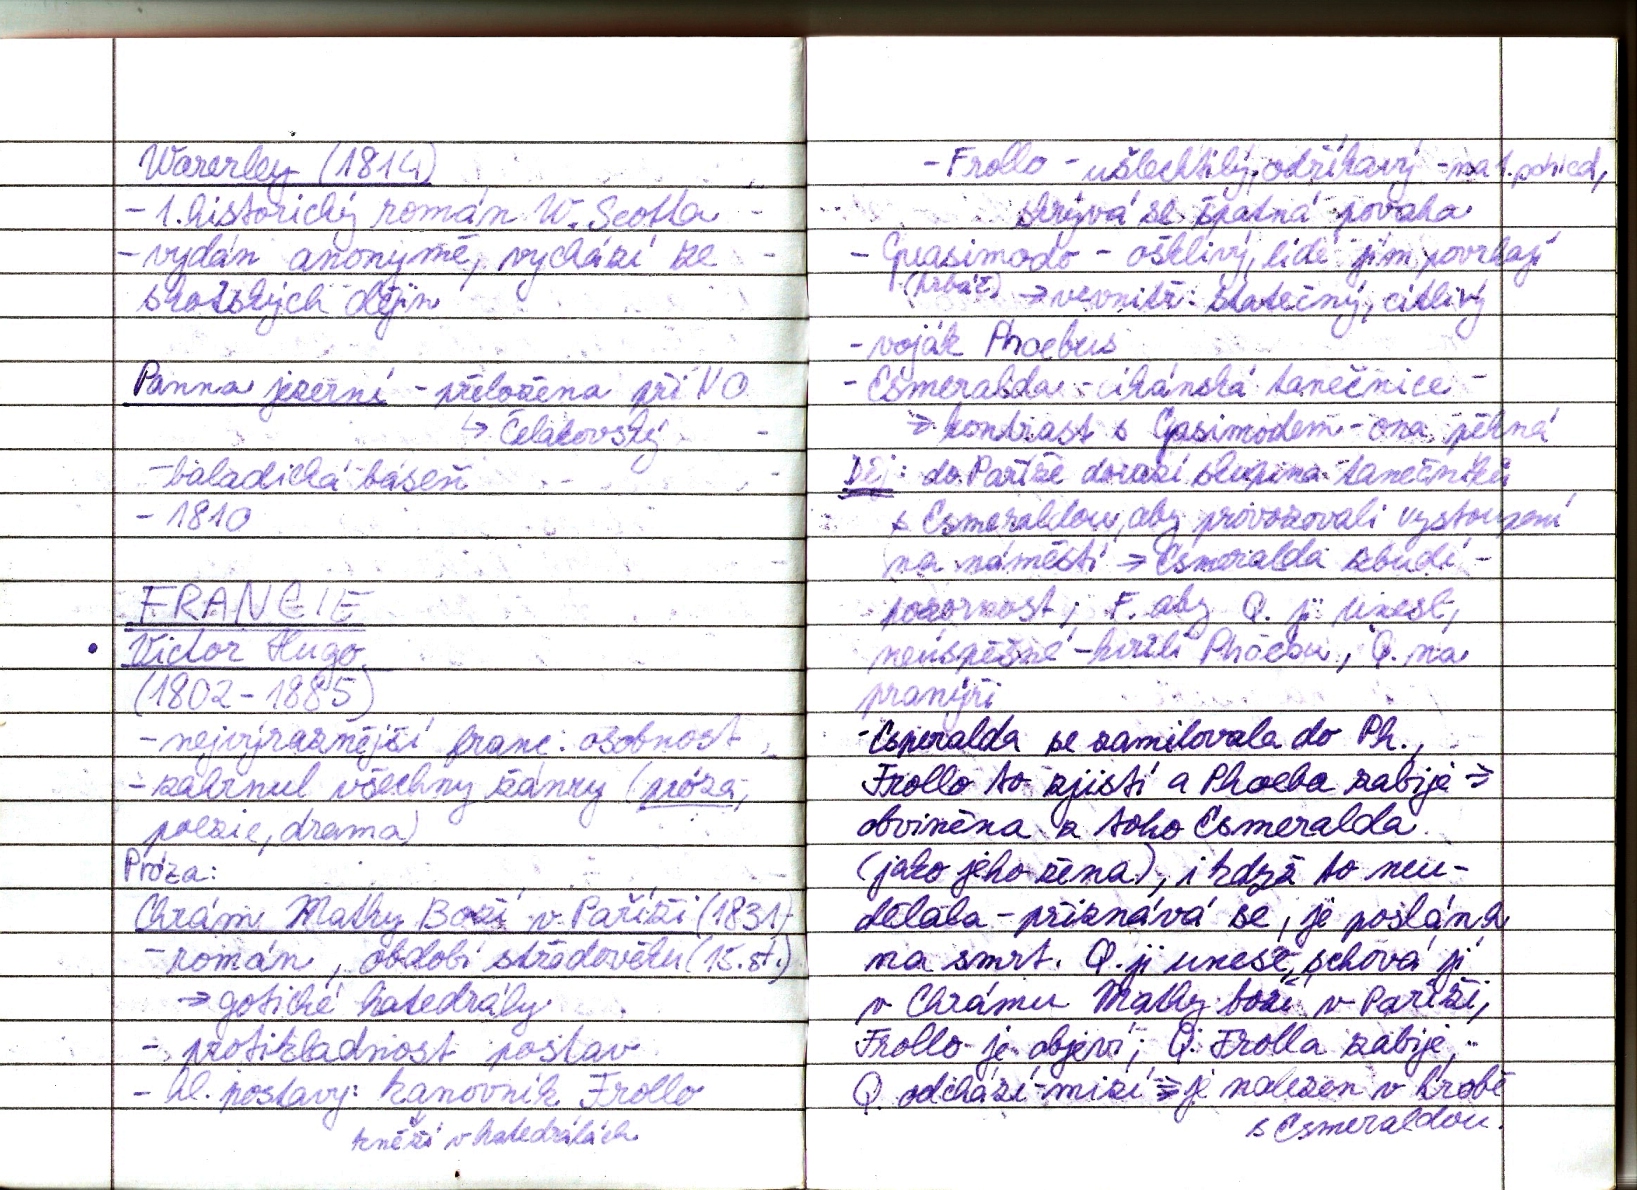 Waverley (1814)
- 1. historický román W. Scotta
- vydán anonymě, vychází ze
skotských dějin
Panna jezerní - přeložena při NO
↳ Čelakovský
- baladická báseň
- 1810
FRANCIE
• Victor Hugo
(1802 - 1885)
- nejvýraznější franc. osobnost
- zahrnul všechny žánry (próza,
poezie, drama)
Próza:
Chrám Matky Boží v Paříži (1831)
- román, období středověku (15. st.)
→ gotické katedrály
- protikladnost postav
- hl. postavy: kanovník Frollo
kněží v katedrálách
- Frollo - ušlechtilý, odříkavý - na 1. pohled,
skrývá se špatná povaha
- Quasimodo - ošklivý, lidé jím povrhají
(hrbáč) → vevnitř: statečný, citlivý
- voják Phoebus
- Esmeralda - cikánská tanečnice
→ kontrast s Qasimodem - ona pěkná
Děj: do Paříže dorazí skupina tanečníků
s Esmeraldou, aby provozovali vystoupení
na náměstí → Esmeralda vzbudí
pozornost; F. aby Q. ji unesl,
neúspěšné - kvůli Phoebu, Q. na
pranýři
- Esmeralda se zamilovala do Ph.,
Frollo to zjistí a Phoeba zabije →
obviněna z toho Esmeralda
(jako jeho žena), i když to neu-
dělala - přiznává se, je poslána
na smrt. Q. ji unese, schová ji
v Chrámu Matky boží v Paříži,
Frollo je objeví; Q. Frolla zabije,
Q. odchází - mizí → je nalezen v hrobě
s Esmeraldou.